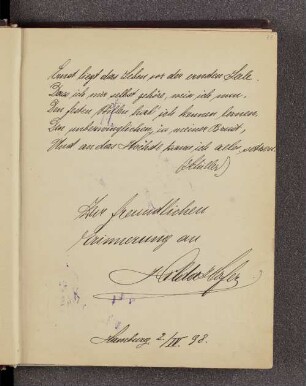 Ernst liegt das Leben vor der ernsten Seele.
Daß ich mir selbst gehöre, weiß ich nun.
Den festen Willen hab' ich kennen lernen
Den unbezwinglichen, in meiner Brust,
Und an das Höchste kann ich alles setzen.
(Schiller)
Zur freundlichen
Erinnerung an
Hamburg 2/IV. 98.